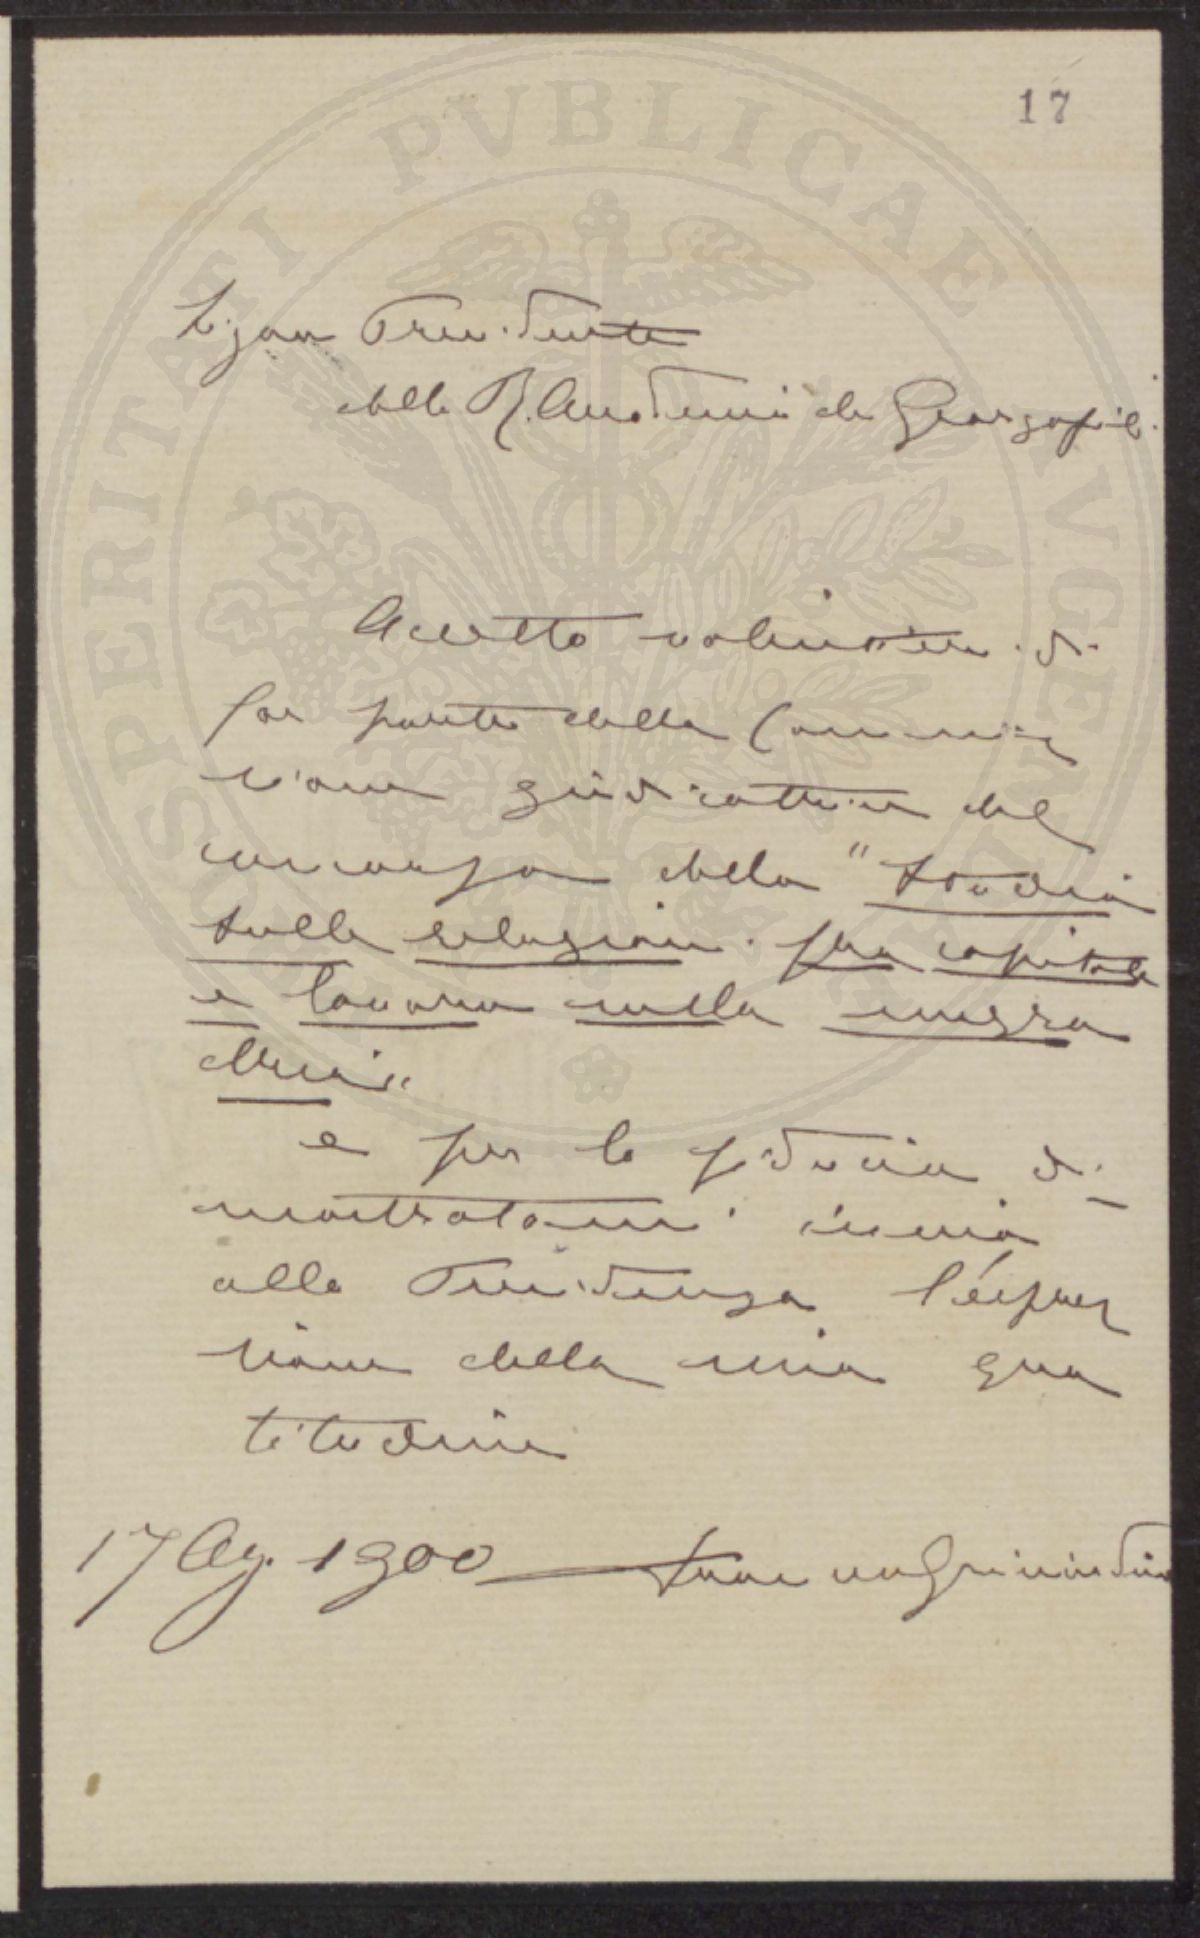 17
PROSPERITATI PVBLICAE AVGENDAE
Signor Presidente
della R. Accademia dei Georgofili.
Accetto volentieri di
far parte della Commis
sione giudicatrice del
concorso dello "studio
sulle relazioni fra capitale
e lavoro nella mezza
dria"
e per la fiducia di
mostratami invio
alla Presidenza l'espres
sione della mia gra
titudine
17 Ag. 1900